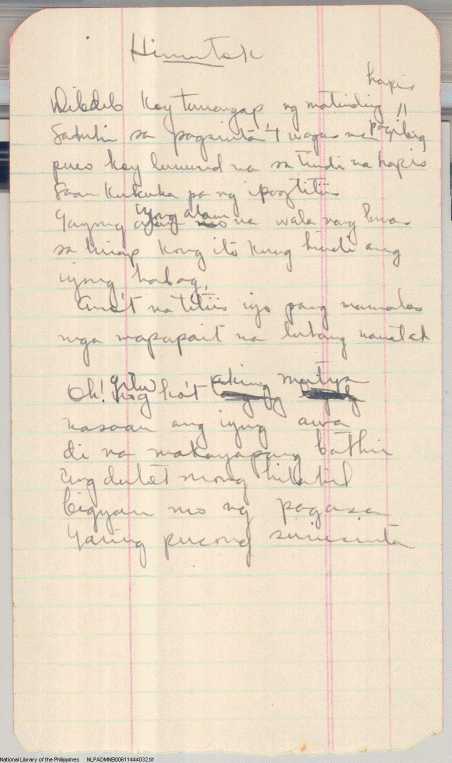 Himutok
hapis
Dibdib koy tumangap ng matinding
Sa pagsinta't wagas na pag ibig
puso koy lunurd na sa tindi na hapis
Saan kukuha pa ng ipagtitiis
iyong alam
Gayong na wala nang
sa hirap kong ito kung hindi ang
iyong habag,
At natitiis iyo pang namalas
mga mapapait na luhang nanatak
Oh! giliw ko't aking mutya
nasaan ang iyong awa
di na makayapang bathin
ang dulot mong hilahil
bigyan mo ng pagasa
yaring pusong sumisinta
National Library of the Philippines NLPADMNB0061144403Z.tif